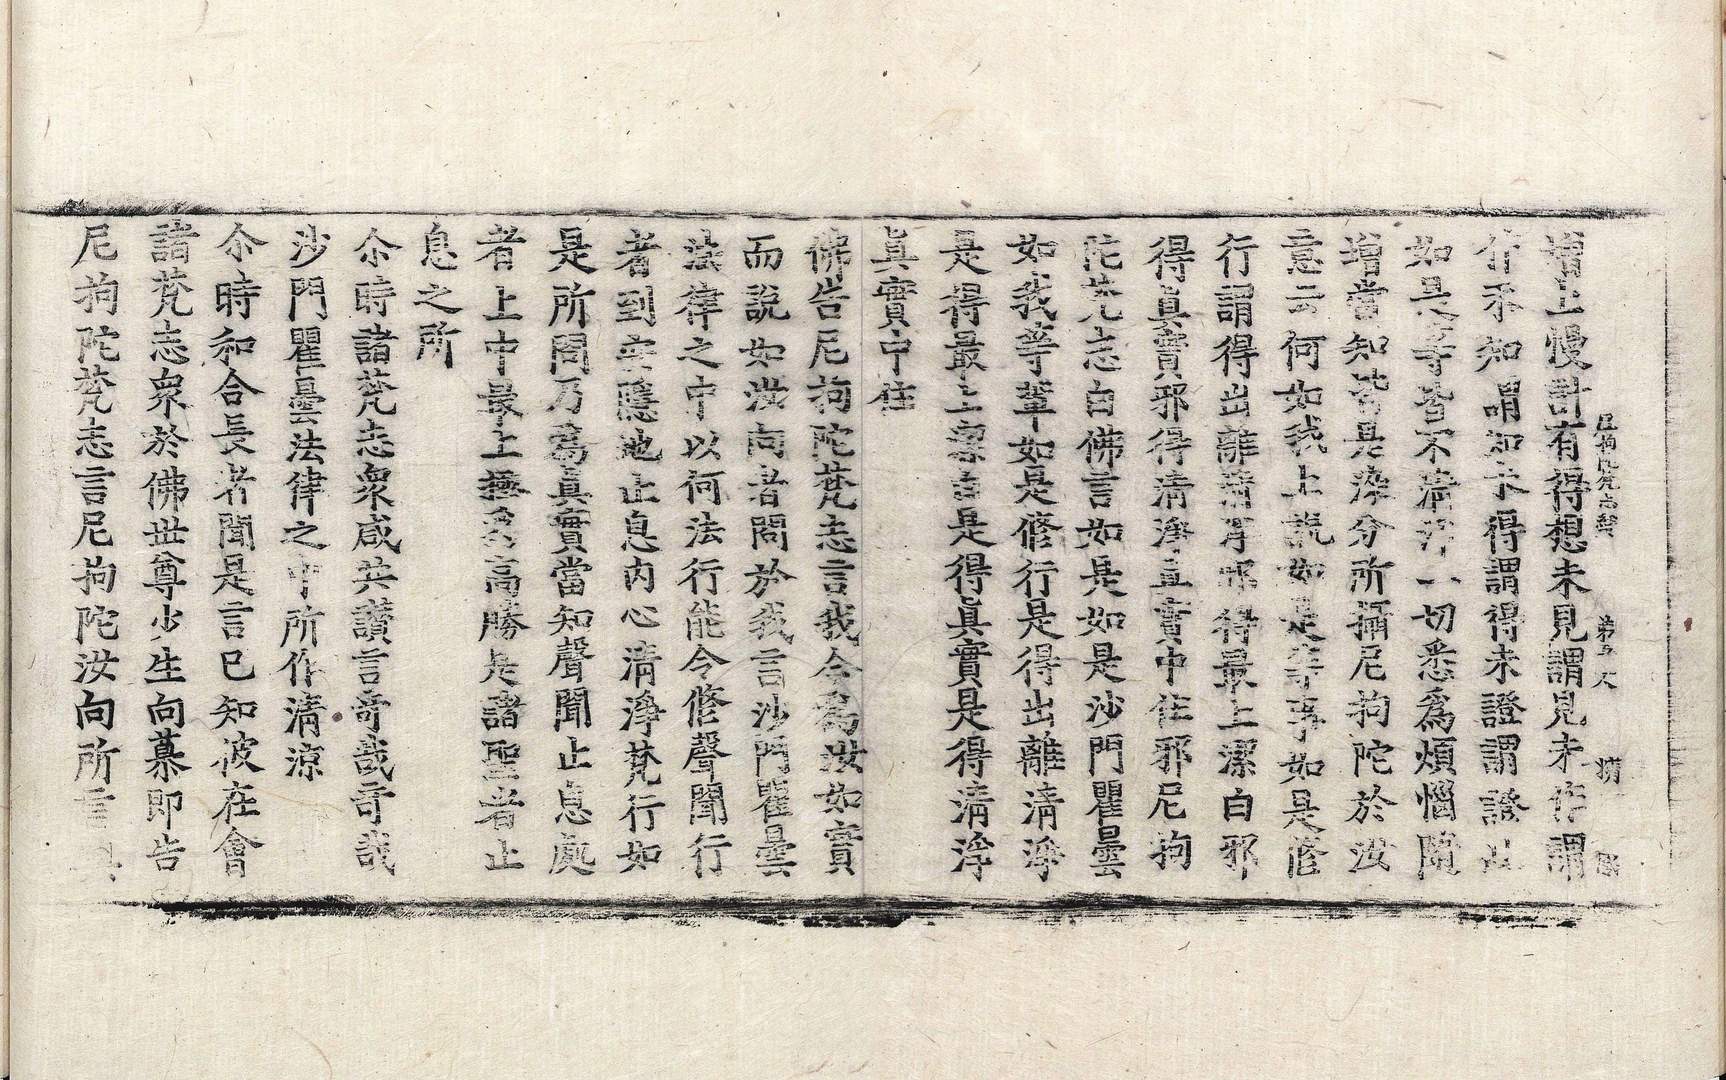 尼拘陀梵志經　第五　張
增上慢計有得想未見謂見未作謂
作不知謂知未得謂得未證謂證
如是等皆不清淨一切悉爲煩惱隨
增當知皆是染分所攝尼拘陀於汝
意云何如我上說如是等事如是修
行謂得出離清淨邪得最上潔白邪
得眞實邪得清淨眞實中住邪尼拘
陀梵志白佛言如是如是沙門瞿曇
如我等輩如是修行是得出離清淨
是得最上潔白是得眞實是得清淨
眞實中住
佛告尼拘陀梵志言我今爲汝如實
而說如汝向者問於我言沙門瞿曇
法律之中以何法行能令修聲聞行
者到安隱地止息內心清淨梵行如
是所問乃爲眞實當知聲聞止息處
者上中最上極爲高勝是諸聖者止
息之所
尒時諸梵志衆咸共讚言奇哉奇哉
沙門瞿曇法律之中所作清涼
尒時和合長者聞是言已知彼在會
諸梵志衆於佛世尊少生向慕即告
尼拘陀梵志言尼拘陀汝向所言